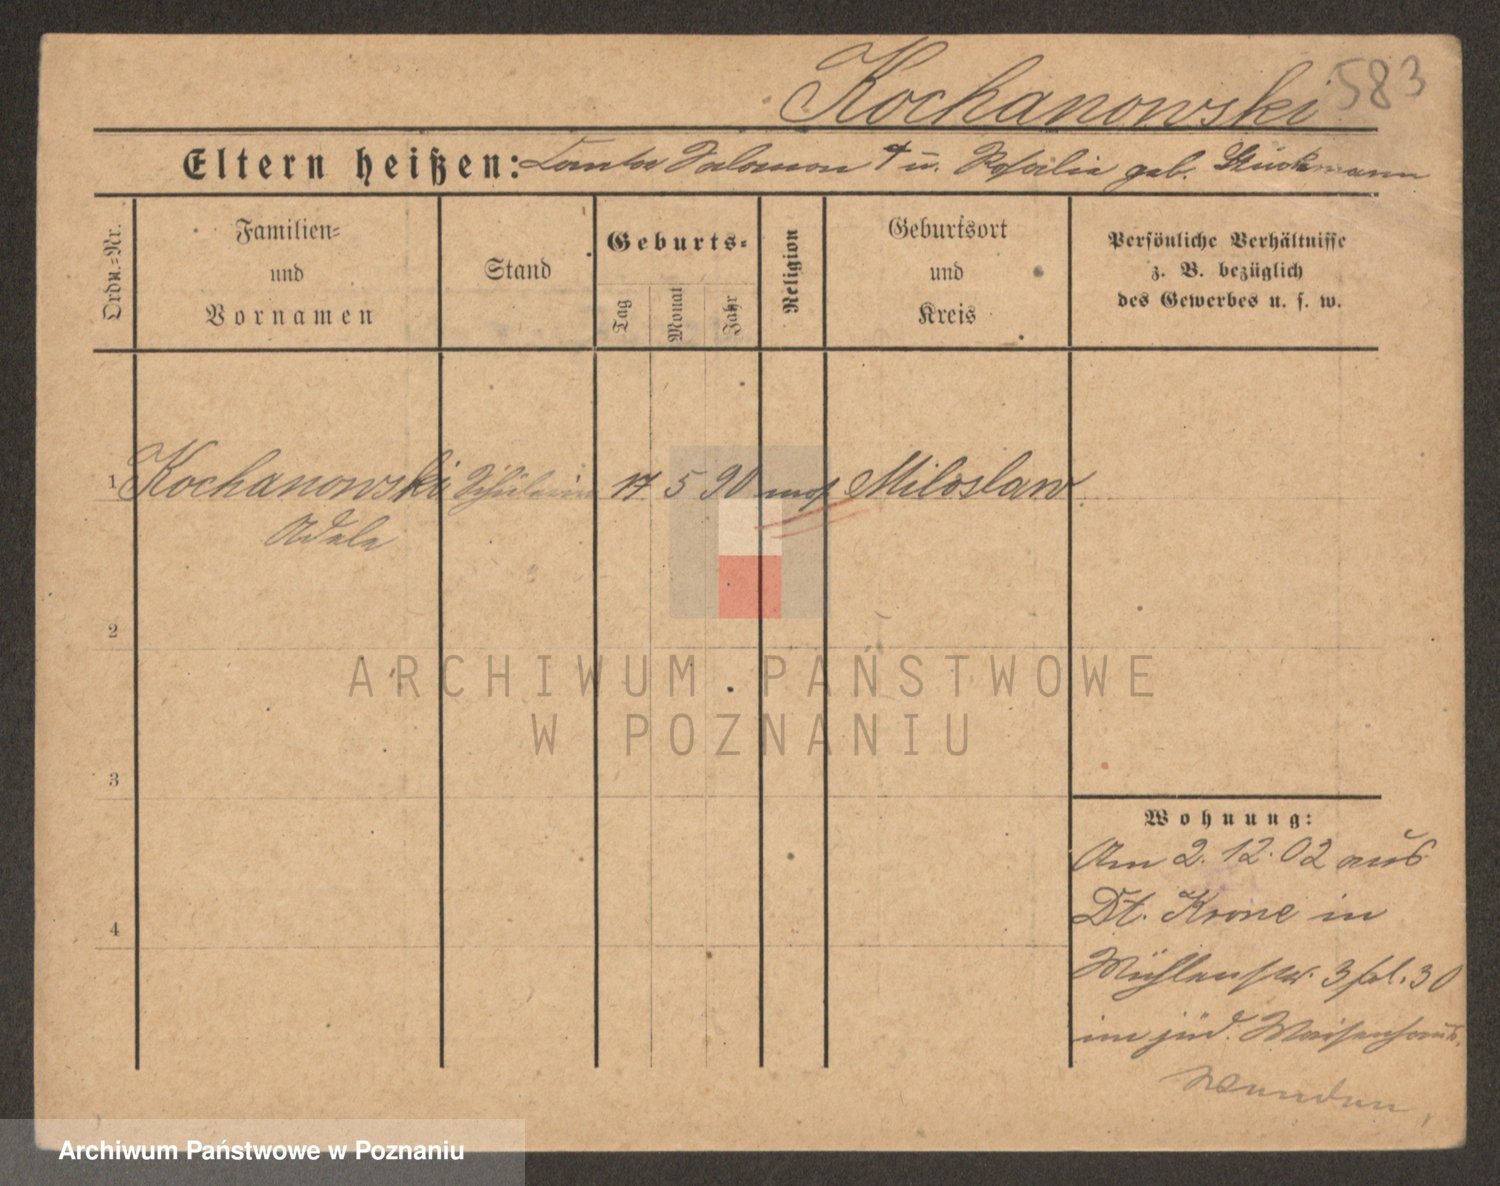 Kochanowski 583
Eltern heißen: Salomon † u. Rosalie geb. Glückmann
Ordn.-Nr.
Familien-
und
Vornamen
Stand
Geburts-
Tag
Monat
Jahr
Religion
Geburtsort
und
Kreis
Persönliche Verhältnisse
z. B. bezüglich
des Gewerbes u. s. w.
1 Kochanowski Schülerin 17 5 90 mos Miloslaw
Adele
2
3
4
Wohnung:
Am 2. 12. 02 aus
Dt. Krone in
Mühlenstr. 3 pl. 30
im jüd. Waisenhaus.
Wenden
ARCHIWUM PAŃSTWOWE
W POZNANIU
Archiwum Państwowe w Poznaniu